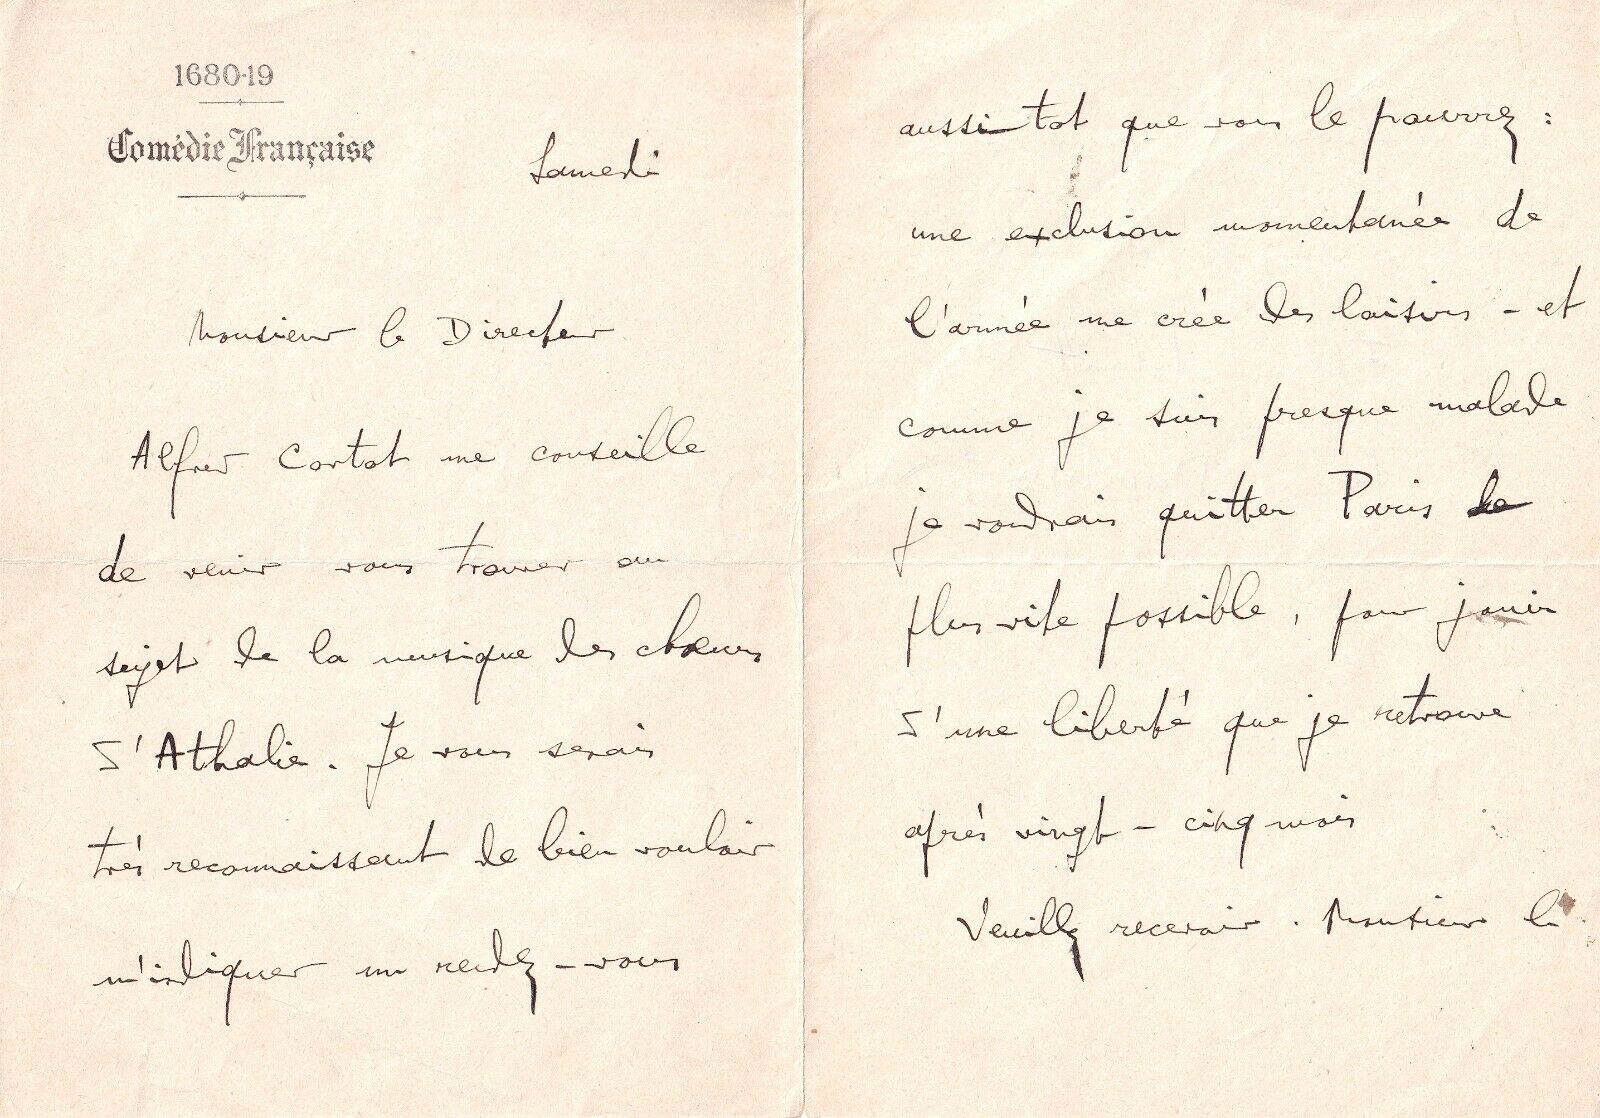 1680-19
Comédie Française
Samedi
Monsieur le Directeur
Alfred Cortot me conseille
de venir vous trouver au
sujet de la musique des chœurs
d'Athalie. Je vous serais
très reconnaissant de bien vouloir
m'indiquer un rendez-vous
aussi-tot que vous le pourrez :
une exclusion momentanée de
l'armée me crée des loisirs - et
comme je suis presque malade
je voudrais quitter Paris le
plus vite possible, pour jouir
d'une liberté que je retrouve
après vingt-cinq mois
Veuillez recevoir. Monsieur le